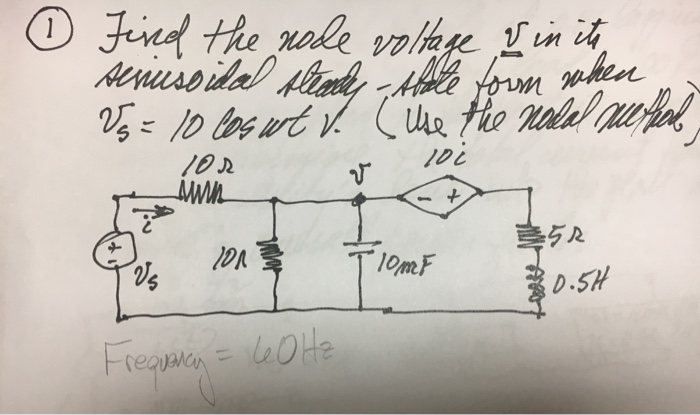 ① Find the node voltage v in its
sinusoidal steady-state form when
Vs = 10 cos wt V. (Use the nodal method)
10Ω
v
10i
i
+
-
Vs
10Ω
10mF
- +
5Ω
0.5H
Frequency = 60Hz